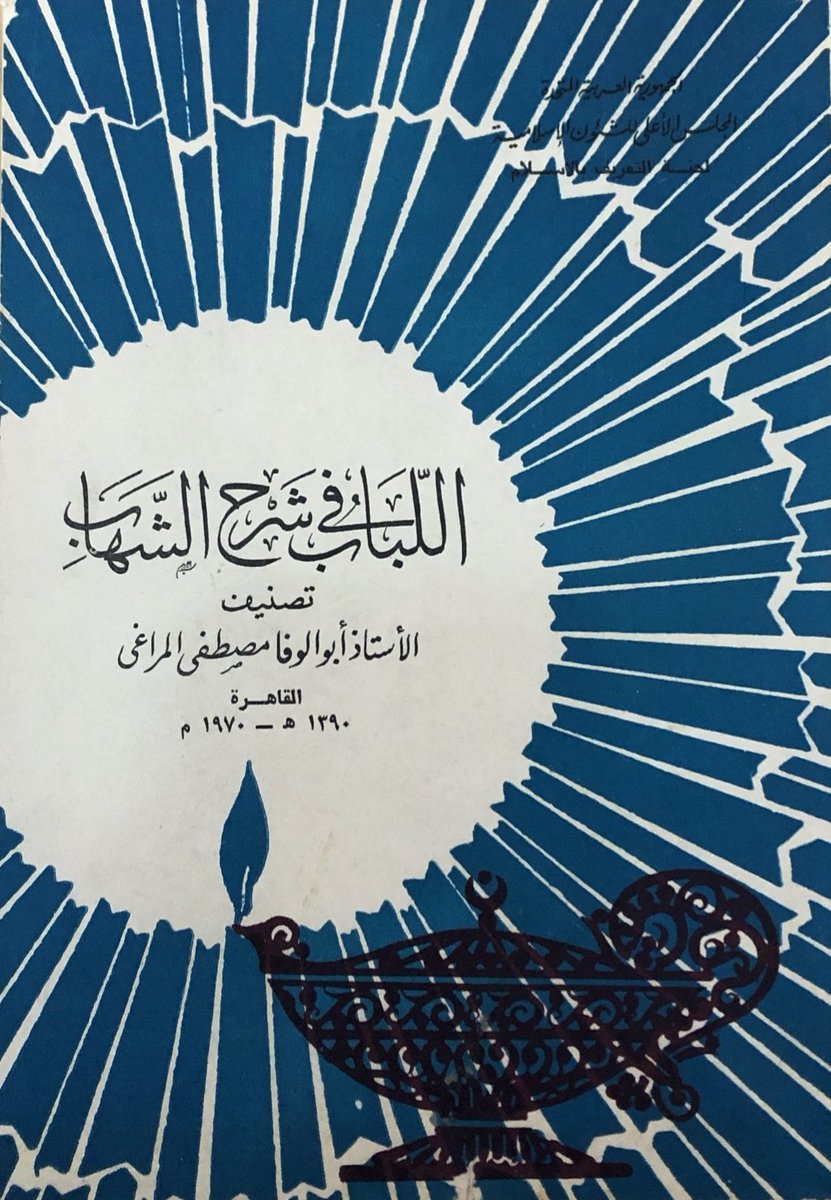 الجمهورية العربية المتحدة
المجلس الأعلى للشئون الإسلامية
لجنة التعريف بالاسلام
اللُّبَاب في شَرح الشِّهَابِ
تصنيف
الأستاذ أبو الوفا مصطفى المراغى
القاهرة
١٣٩٠ هـ — ١٩٧٠ م